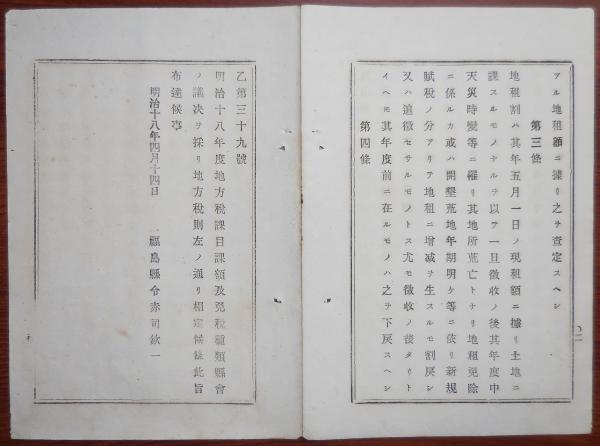 アル地租額ニ據リ之ヲ査定スヘシ
第三條
地租割ハ其年五月一日ノ現租額ニ據リ土地ニ
課スルモノナルヲ以テ一旦徴收ノ後其年度中
天災時變等ニ罹リ其地所荒亡トナリ地租免除
ニ係ルカ或ハ開墾荒地年期明ケ等ニ依リ新規
賦税ノ分アリテ地租ニ增减ヲ生スルモ割戻シ
又ハ追徴セサルモノトス尤モ徴收ノ後タリト
イヘモ其年度前ニ在ルモノハ之ヲ下戻スヘシ
第四條
二
乙第三十九號
明治十八年度地方税課目課額及免税種類縣會
ノ議决ヲ採リ地方税則左ノ通リ相定候條此旨
布達候事
明治十八年四月十四日
福島縣令赤司欽一